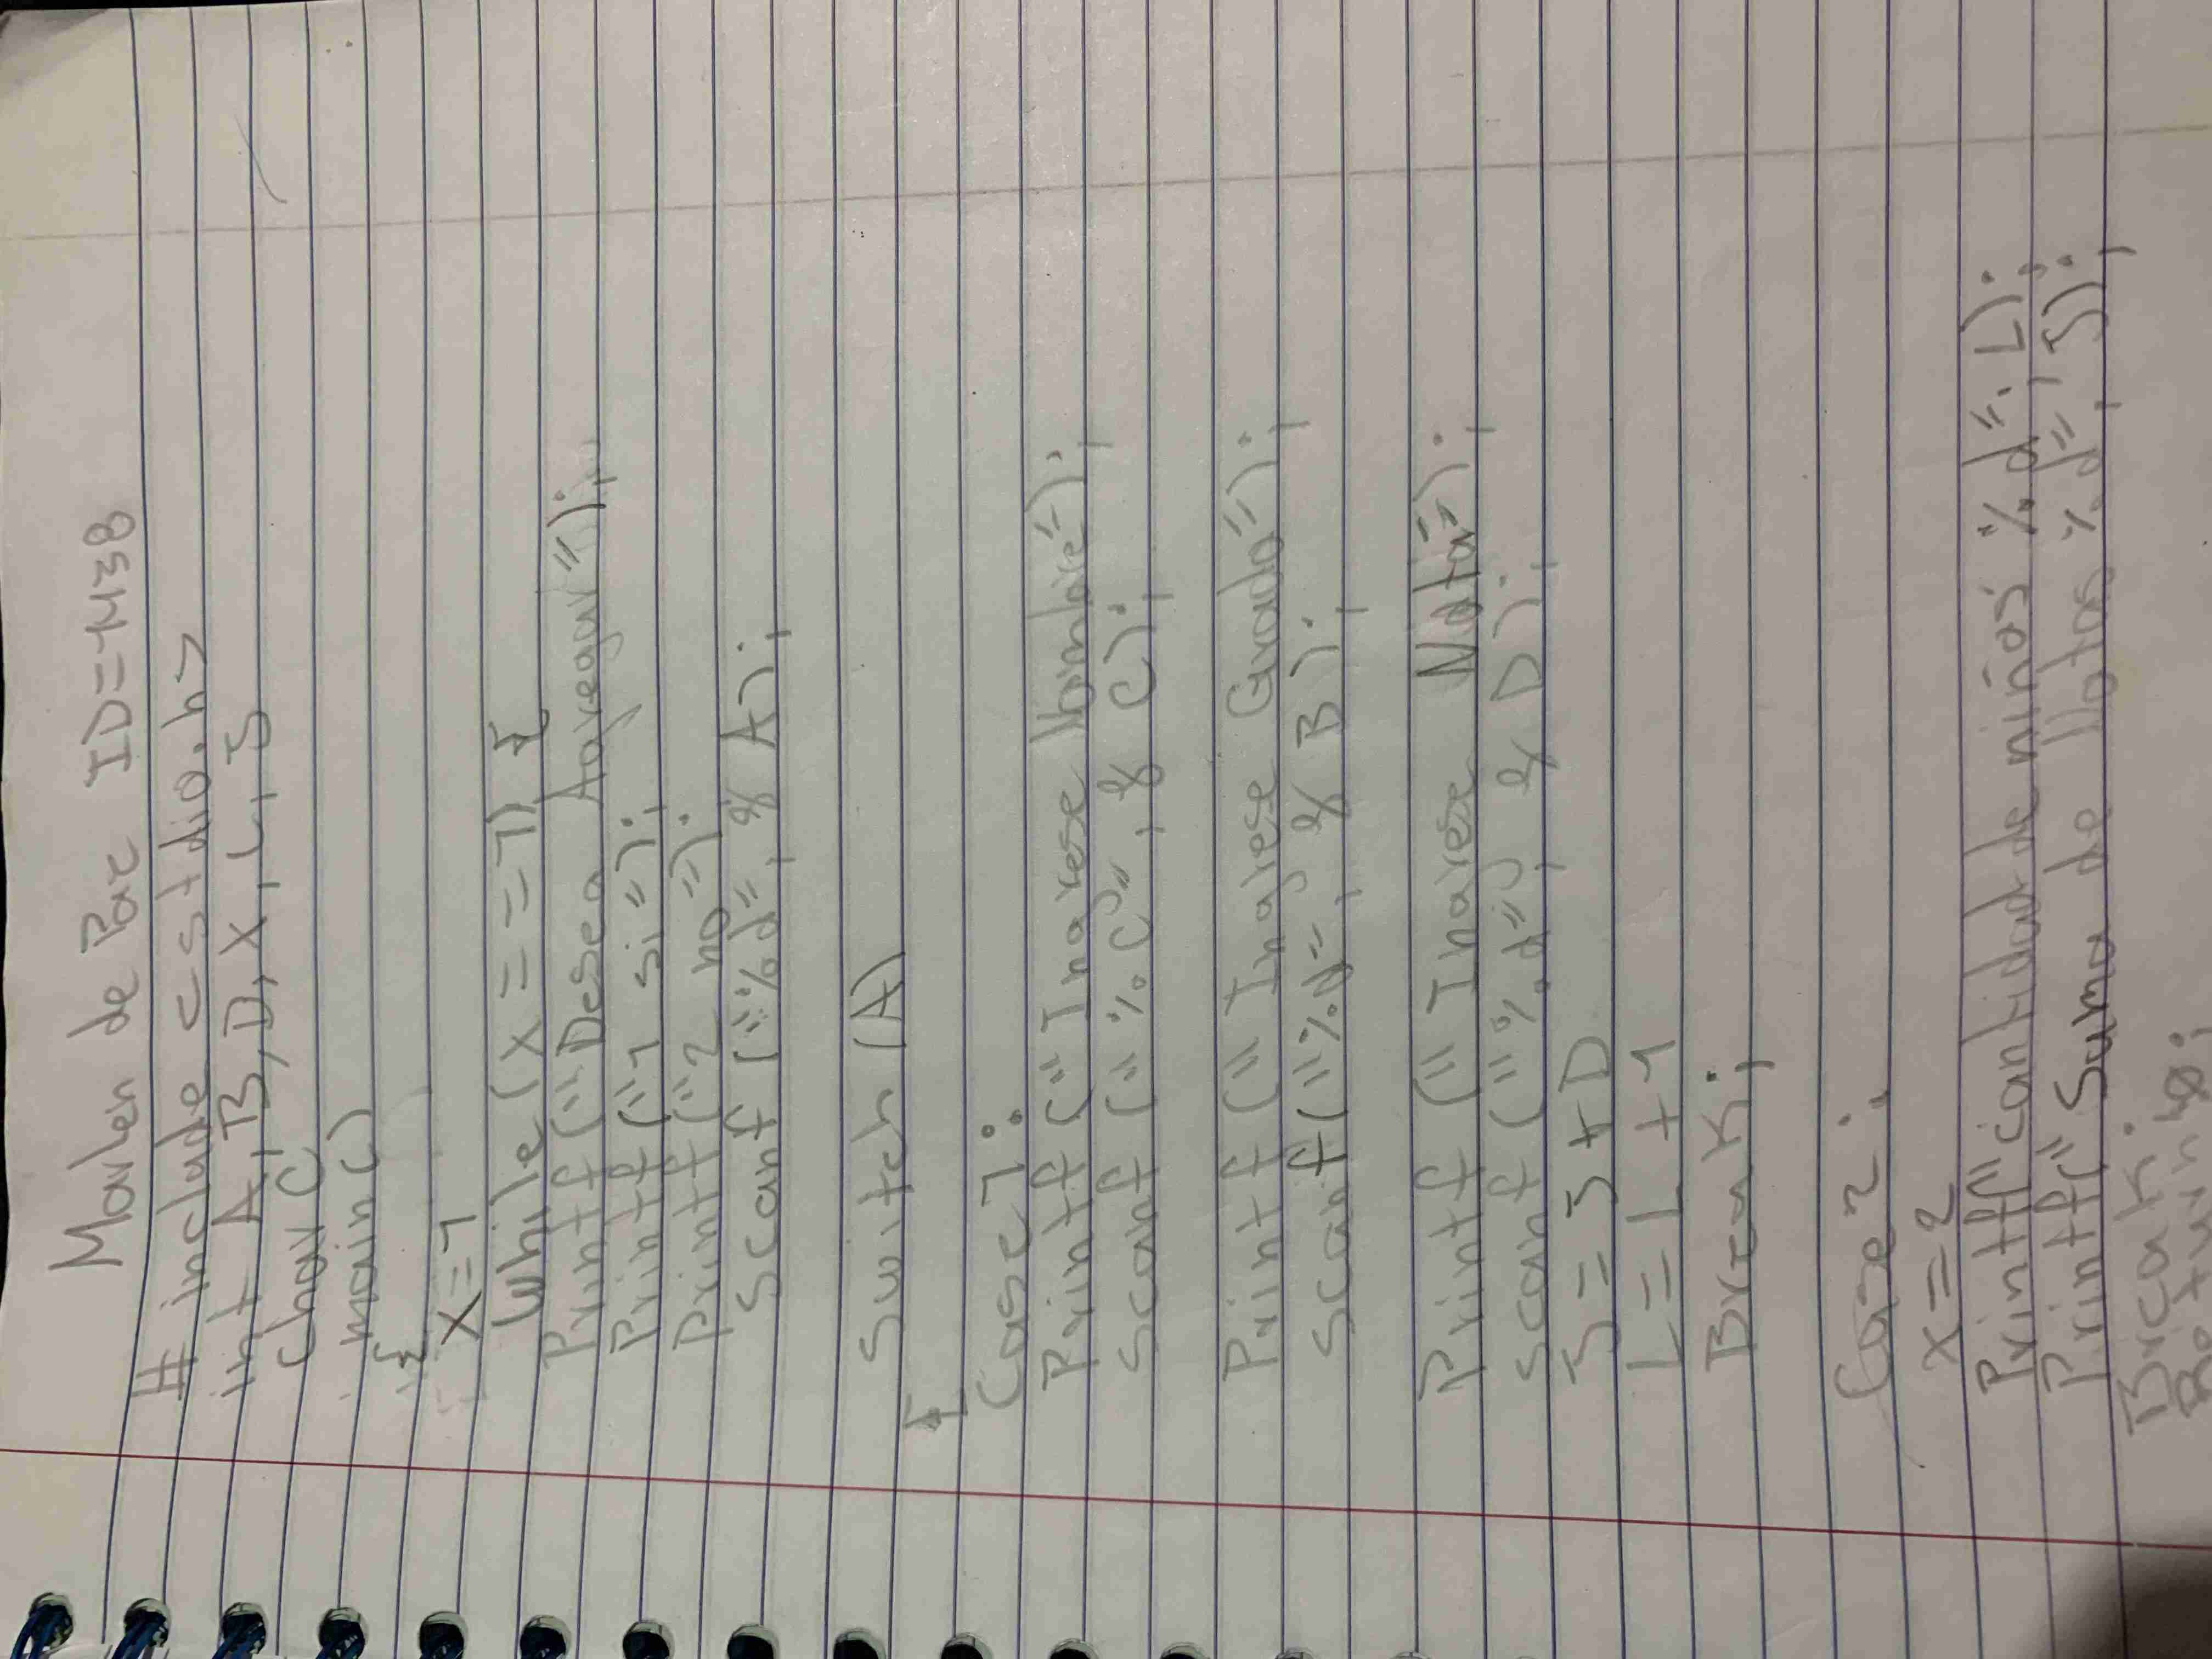 Marlen de Paz ID=1438
# include <stdio.h>
int A, B, D, X, L, S
char C
main()
{
X=1
While (X==1) {
Printf ("Desea Agregar");
Printf ("1 si");
Printf ("2 no");
Scanf ("%d", & A);
Switch (A)
{
Case 1:
Printf ("Ingrese Nombre");
Scanf ("%c", & C);
Printf ("Ingrese Grado");
Scanf ("%d", & B);
Printf ("Ingrese Nota");
Scanf ("%d", & D);
S=S+D
L=L+1
Break;
Case 2:
X=2
Printf("cantidad de niños %d", L);
Printf("Suma de Notas %d", S);
Break;